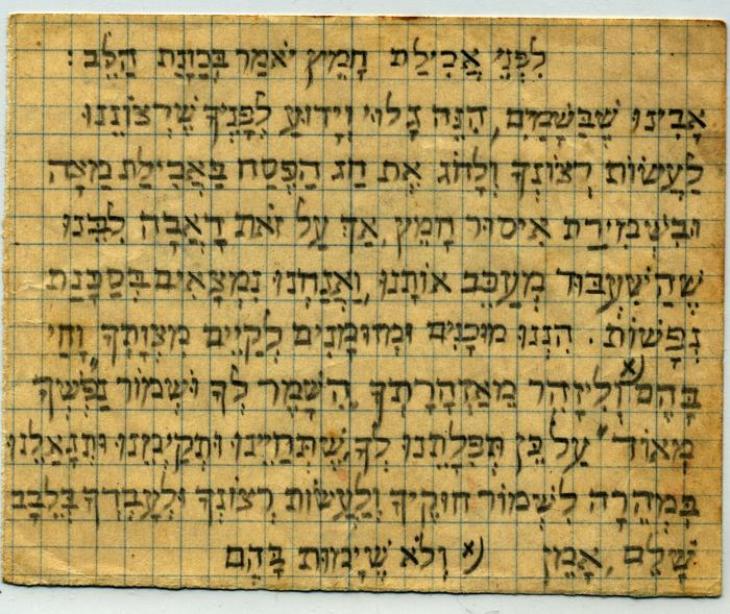 לִפְנֵי אֲכִילַת חָמֵץ יֹאמַר בְּכַוָּנַת הַלֵּב :
אָבִינוּ שֶׁבַּשָּׁמַיִם, הִנֵּה גָלוּי וְיָדוּעַ לְפָנֶיךָ שֶׁרְצוֹנֵנוּ
לַעֲשׂוֹת רְצוֹנְךָ וְלָחֹג אֶת חַג הַפֶּסַח בַּאֲכִילַת מַצָּה
וּבִשְׁמִירַת אִיסוּר חָמֵץ, אַךְ עַל זֹאת דָאֲבָה לִבֵּנוּ
שֶׁהַשִּׁעְבּוּד מְעַכֵּב אוֹתָנוּ, וַאֲנַחְנוּ נִמְצָאִים בְּסַכָּנַת
נְפָשׁוֹת. הִנְנוּ מוּכָנִים וּמְזוּמָּנִים לְקַיֵּים מִצְוָתְךָ "וָחַי
בָּהֶם" x) וְלִיזָּהֵר מֵאַזְהָרָתְךָ "הִשָּׁמֶר לְךָ וּשְׁמוֹר נַפְשְׁךָ
מְאוֹד" עַל כֵּן תְּפִלָּתֵנוּ לְךָ, שֶׁתְּחַיֵּינוּ וּתְקַיְּמֵנוּ וּתִגְאָלֵנוּ
בִּמְהֵרָה לִשְׁמוֹר חוּקֶּיךָ וְלַעֲשׂוֹת רְצוֹנְךָ וּלְעָבְדְּךָ בְּלֵבָב
שָׁלֵם, אָמֵן x) וְלֹא שֶׁיָּמוּת בָּהֶם